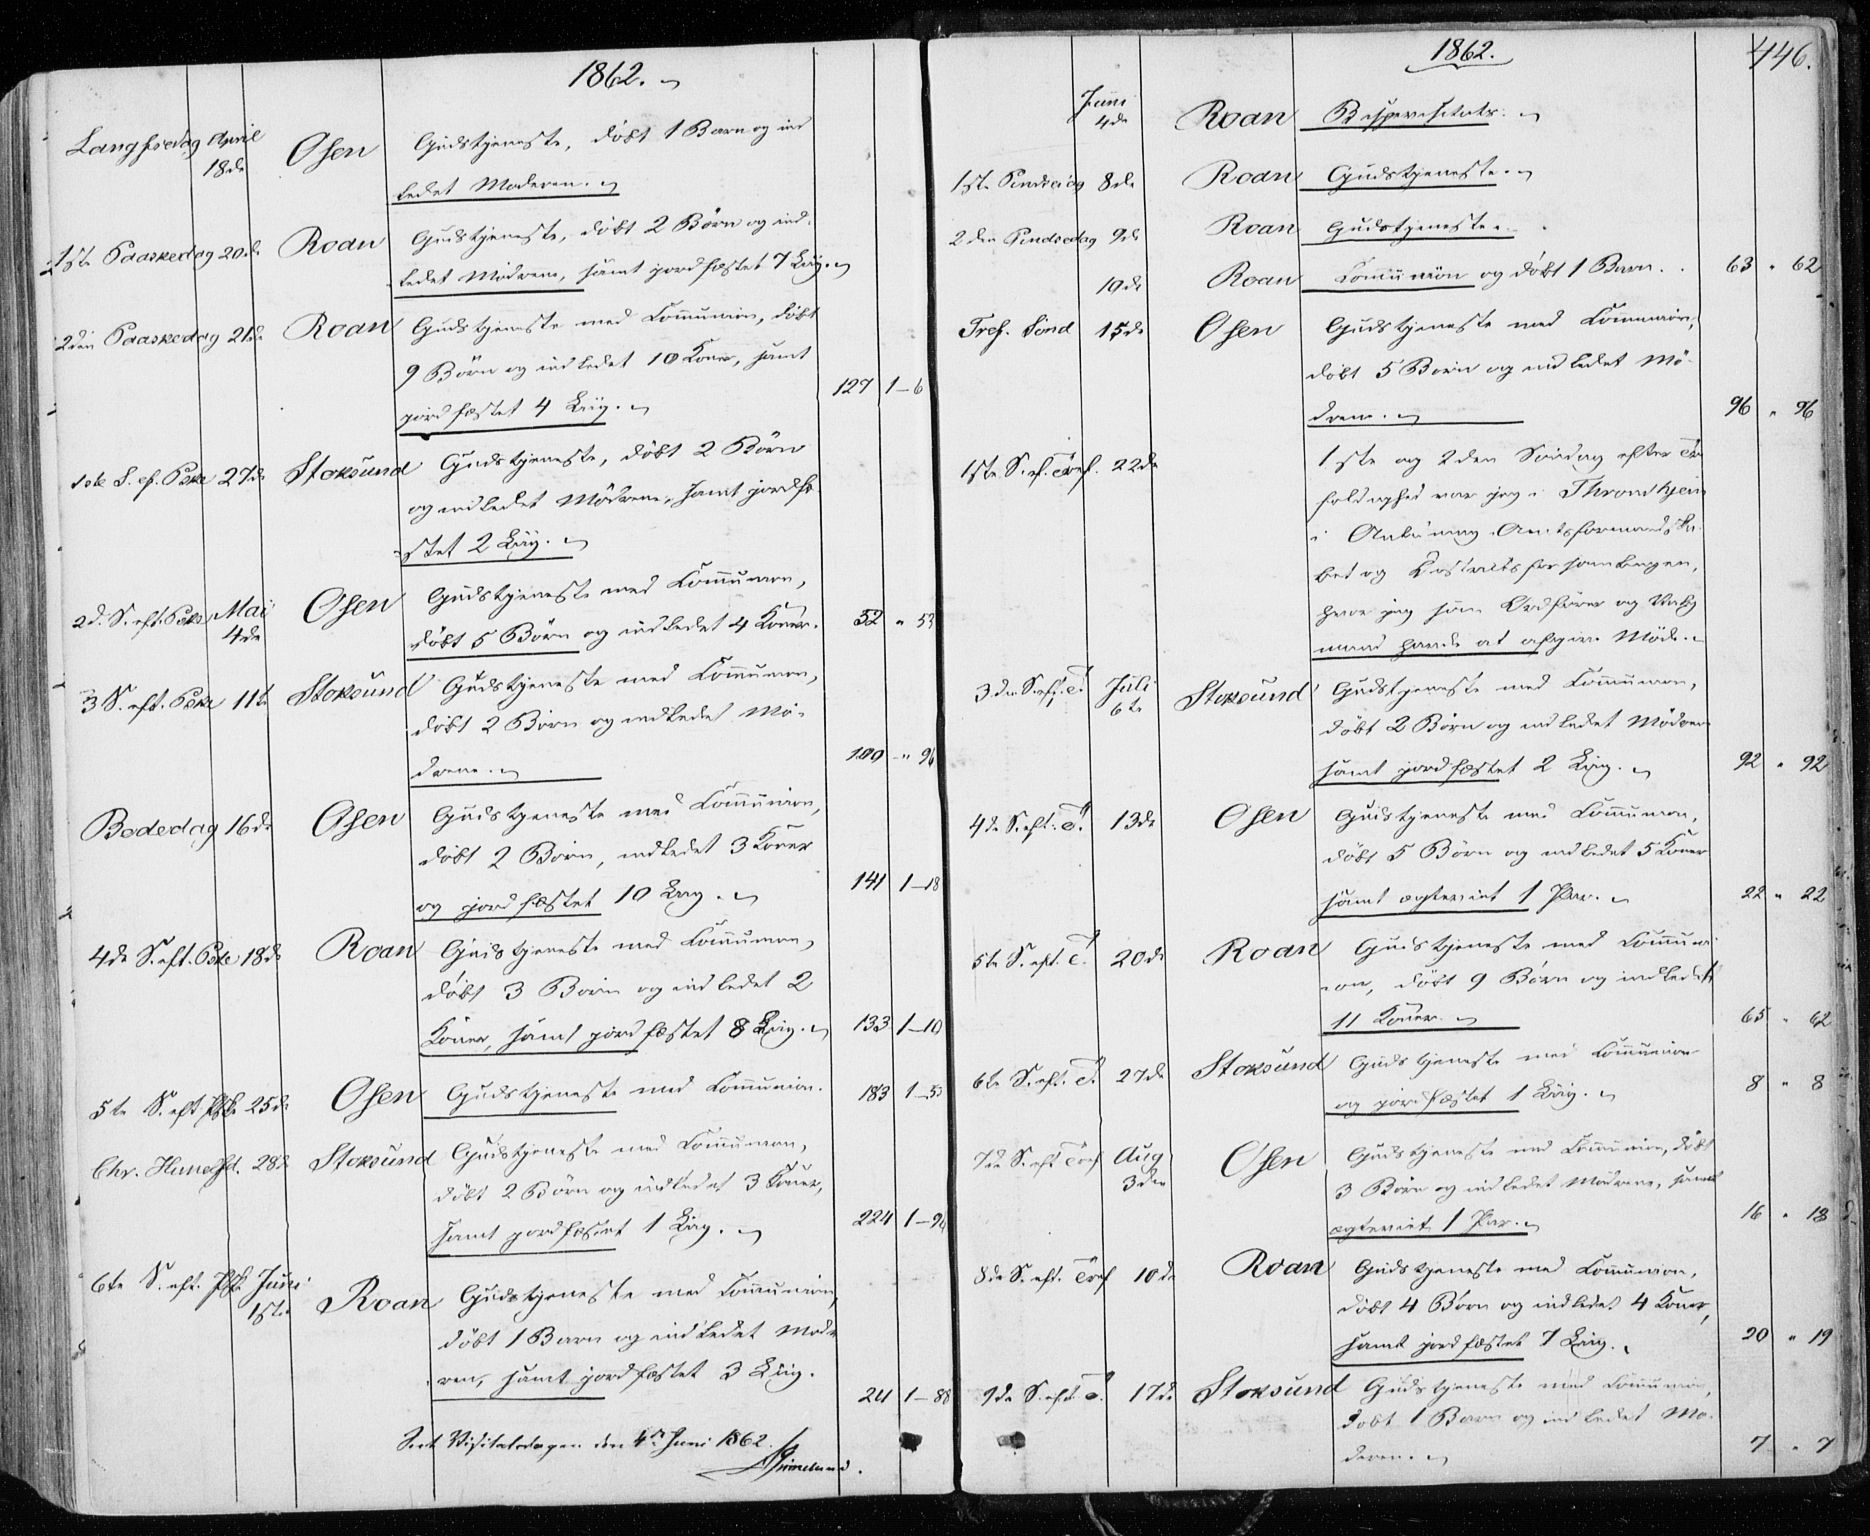 1862.
Langfredag April 18de Osen Gudstjeneste, döbt 1 Barn og ind
ledet Moderen.
1ste Paaskedag 20de Roan Gudstjeneste, döbt 2 Börn og ind-
ledet Mödrene, samt jordfæstet 7 Liig.
2den Paaskedag 21de Roan Gudstjeneste med Communion, döbt
9 Börn og indledet 10 Koner, samt
jordfæstet 4 Liig. 127 1-6
1ste S. ef. Paske 27de Stoksund Gudstjeneste, döbt 2 Börn
og indledet Mödrene, samt jordfæ-
stet 2 Liig.
2d. S. eft. Paske Mai 4de Osen Gudstjeneste med Communion,
döbt 5 Börn og indledet 4 Koner. 52 " 53
3 S. eft. Paske 11te Stoksund Gudstjeneste med Communion,
döbt 2 Börn og indledet Mö-
drene. 100 " 96
Bededag 16de Osen Gudstjeneste med Communion,
döbt 2 Börn, indledet 3 Koner
og jordfæstet 10 Liig. 141 1-18
4de S. eft. Paske 18de Roan Gudstjeneste med Communion,
döbt 3 Börn og indledet 2
Koner, samt jordfæstet 8 Liig. 133 1-10
5te S. eft Pske 25de Osen Gudstjeneste med Communion. 183 1-53
Chr. Himelfd. 28de Stoksund Gudstjeneste med Communion,
döbt 2 Börn og indledet 3 Koner,
samt jordfæstet 1 Liig. 224 1-94
6te S. eft. Pske Juni 1ste Roan Gudstjeneste med Communion,
döbt 1 Barn og indledet Mode
ren, samt jordfæstet 3 Liig. 211 1-88
Seet Visitatsdagen den 4de Juni 1862.
1862. 446.
Juni 4de Roan Bispevisitats.
1ste Pindsedag 8de Roan Gudstjeneste.
2den Pindsedag 9de Roan Gudstjeneste.
10de Roan Communion og döbt 1 Barn. 63 " 62
Tref. Sönd 15de Osen Gudstjeneste med Communion,
döbt 5 Börn og indledet Mö-
drene. 96 " 96
1ste S. ef. Tref. 22de 1ste og 2den Söndag efter Tre
foldighed var jeg i Throndhjem
i Anledning Amtsformandska-
bet og
hvor jeg som Ordförer og
mand havde at afgive Möde.
3die S. eft. T. Juli 6te Stoksund Gudstjeneste med Communion,
döbt 2 Börn og indledet Mödrene
samt jordfæstet 2 Liig. 92 " 92
4de S. eft. T. 13de Osen Gudstjeneste med Communion,
döbt 5 Börn og indledet 5 Koner
samt ægteviet 1 Par. 22 " 22
5te S. eft. T. 20de Roan Gudstjeneste med Commun
ion, döbt 9 Börn og indledet
11 Koner. 65 " 62
6te S. eft. T. 27de Stoksund Gudstjeneste med Communion
og jordfæstet 1 Liig. 8 " 8
7de S. eft Tref Aug 3die Osen Gudstjeneste med Communion, döbt
3 Börn og indledet Mödrene, samt
ægteviet 1 Par. 16 " 18
8de S. eft. Tref 10de Roan Gudstjeneste med Communion,
döbt 4 Börn og indledet 4 Koner,
samt jordfæstet 7 Liig. 20 " 19
9de S. eft. T. 17de Stoksund Gudstjeneste med Communion,
döbt 1 Barn og indledet Mo-
deren. 7 " 7